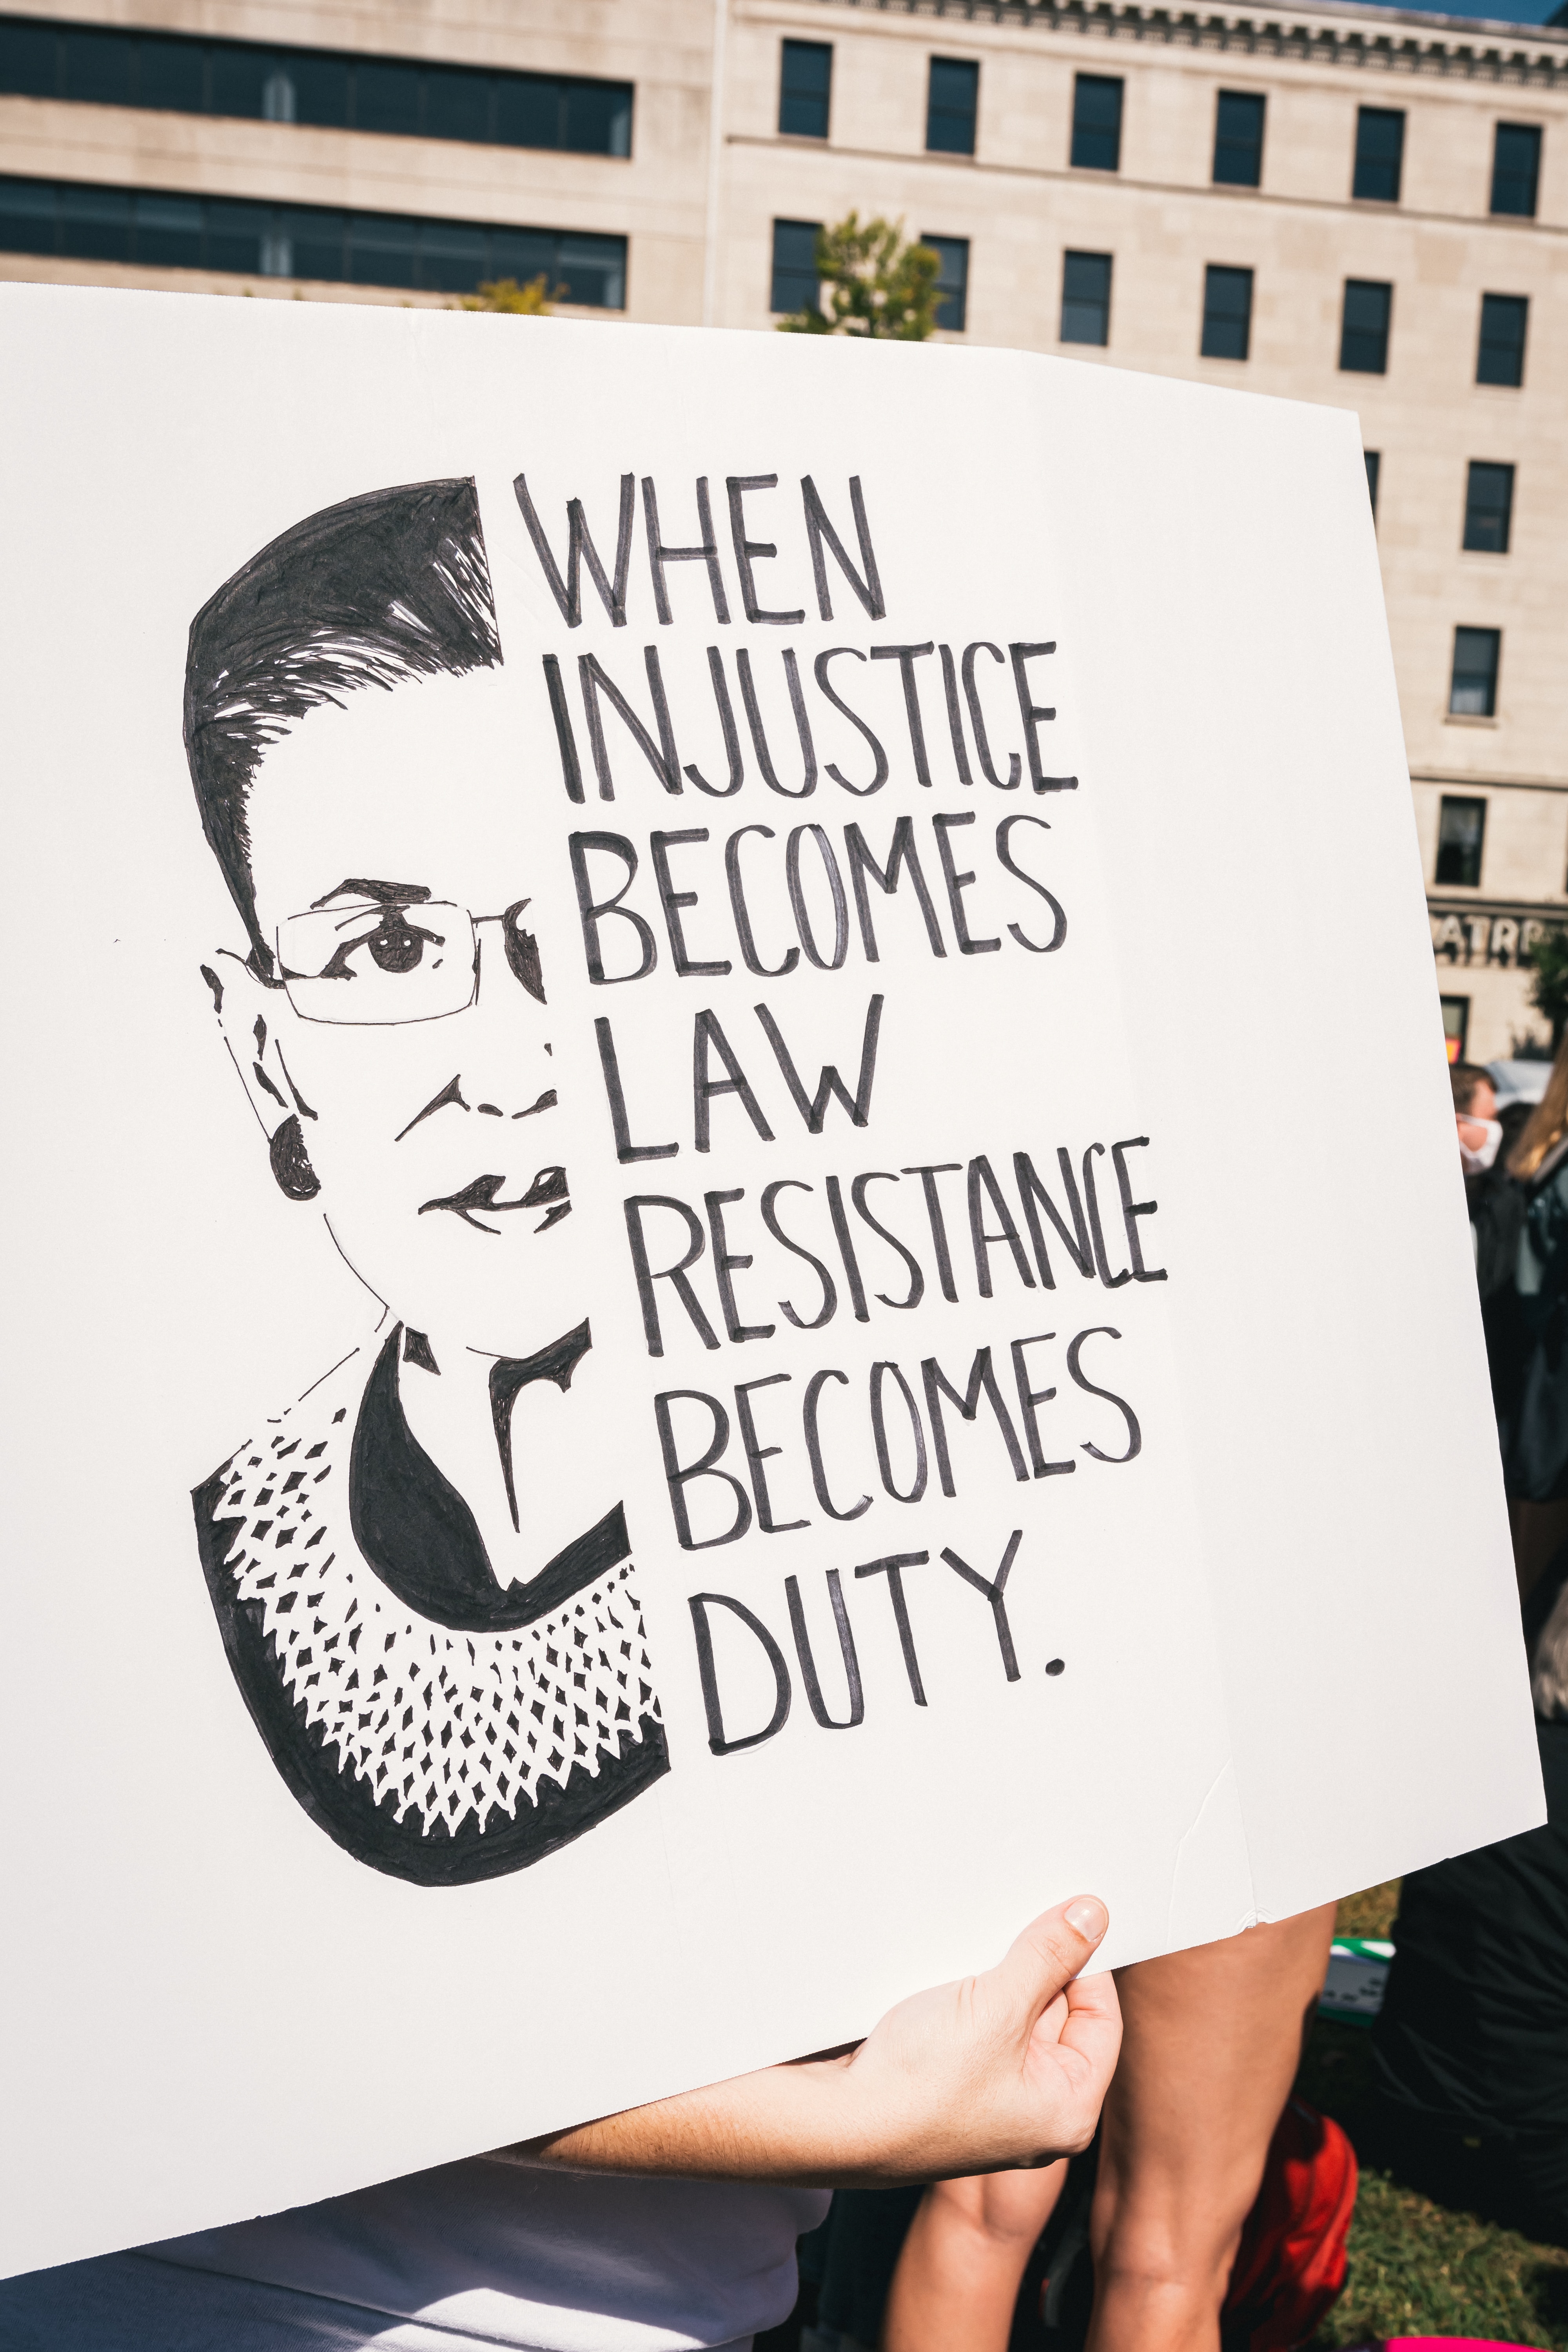 WHEN
INJUSTICE
BECOMES
LAW
RESISTANCE
BECOMES
DUTY.